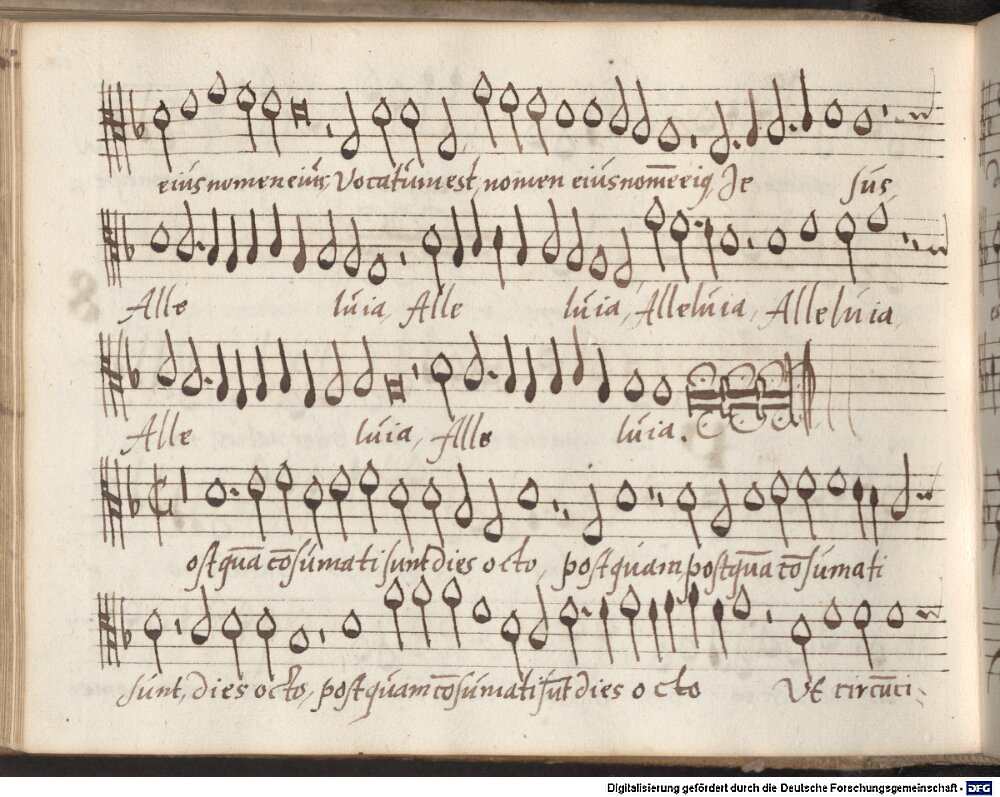 eius nomen eius, Vocatum est, nomen eius nom̄e eiꝯ, Je sus
Alle luia, Alle luia, Alleluia, Alleluia,
Alle luia, Alle luia.
ostquā cōsumati sunt dies octo, postquam, postquā cōsumati
sunt, dies octo, postquam cōsumati sūt dies octo Vt circūci-
Digitalisierung gefördert durch die Deutsche Forschungsgemeinschaft - DFG